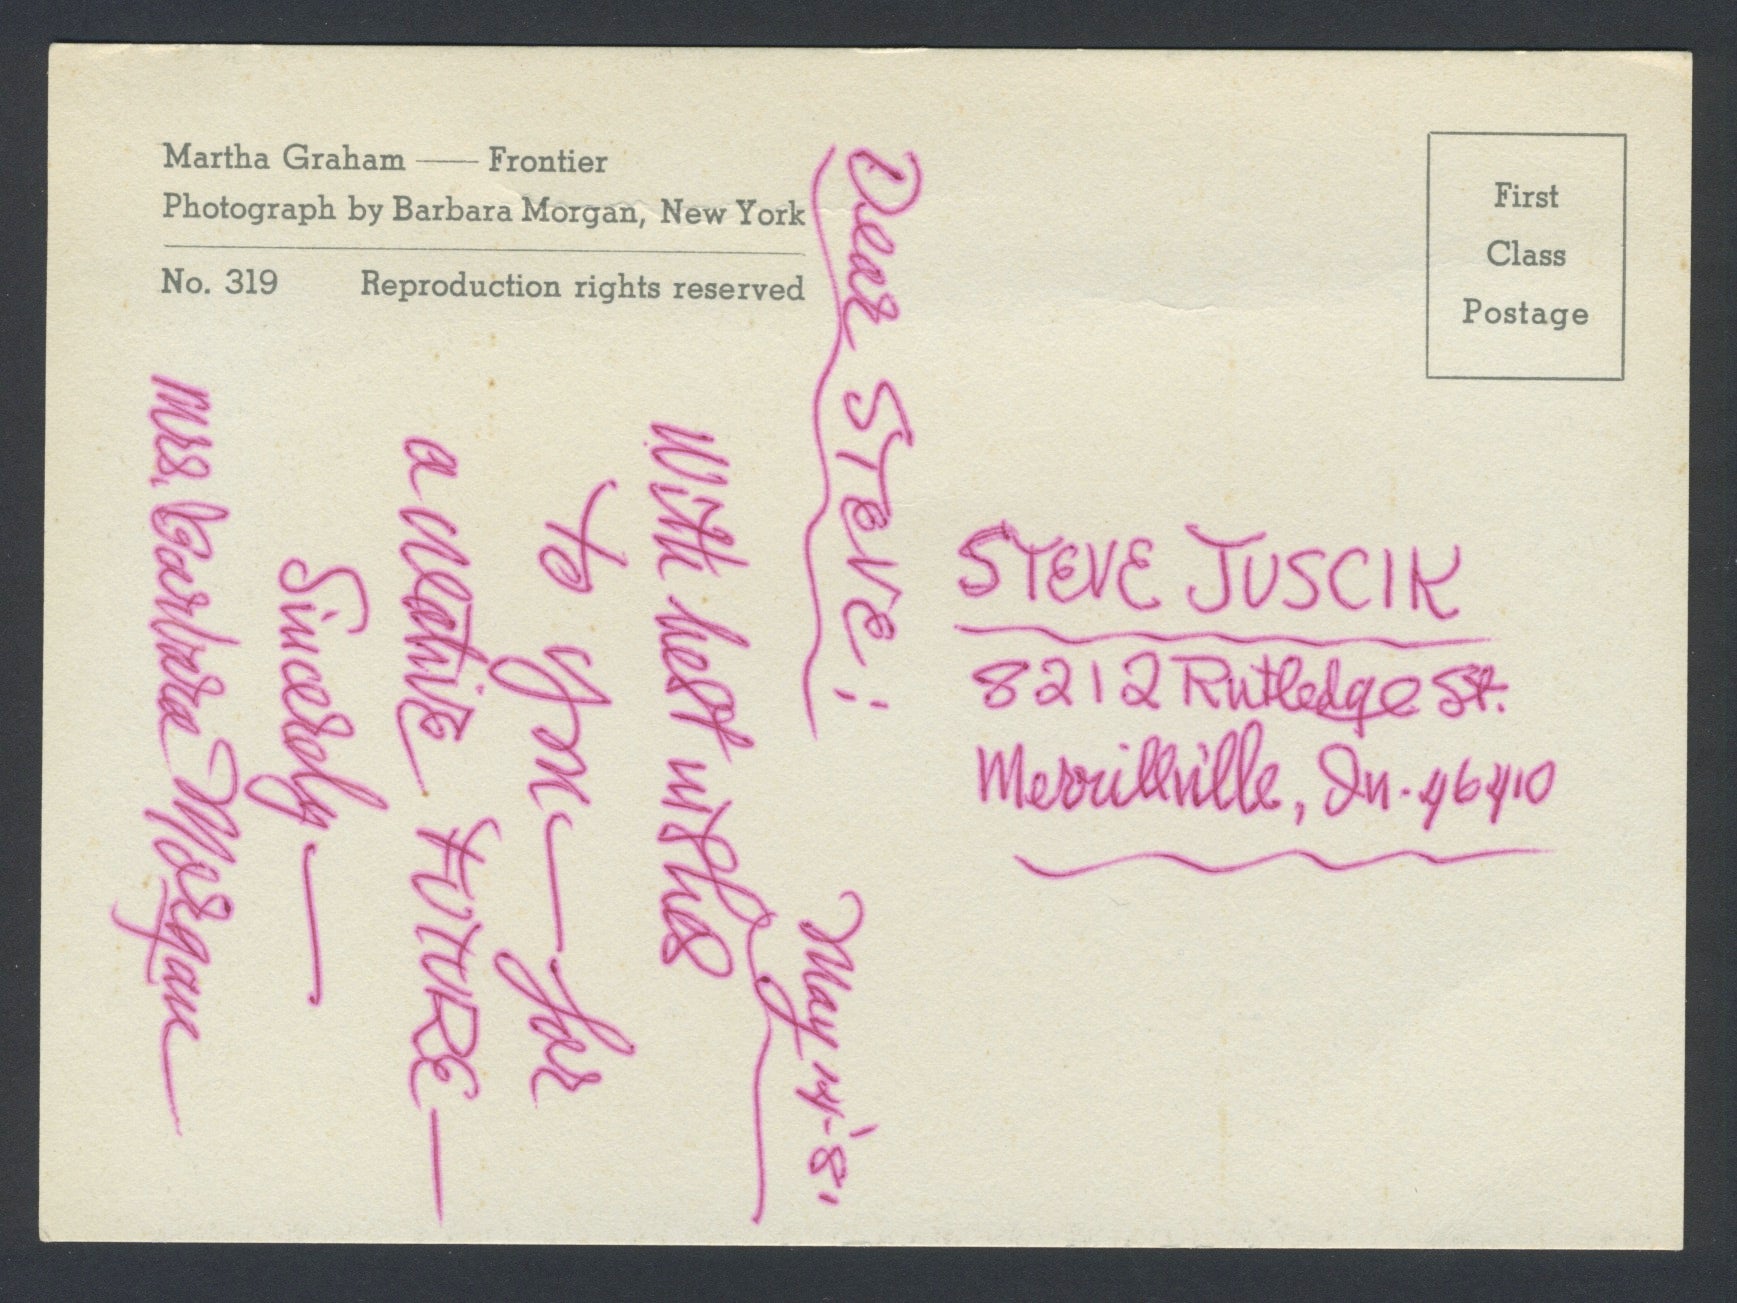 Martha Graham — Frontier
Photograph by Barbara Morgan, New York
No. 319 Reproduction rights reserved
First
Class
Postage
May 14-'81
Dear STEVE:
With best wishes
to you — for
a creative FUTURE —
Sincerely —
Mrs. Barbara Morgan
STEVE JUSCIK
8212 Rutledge St.
Merrillville, In. 46410